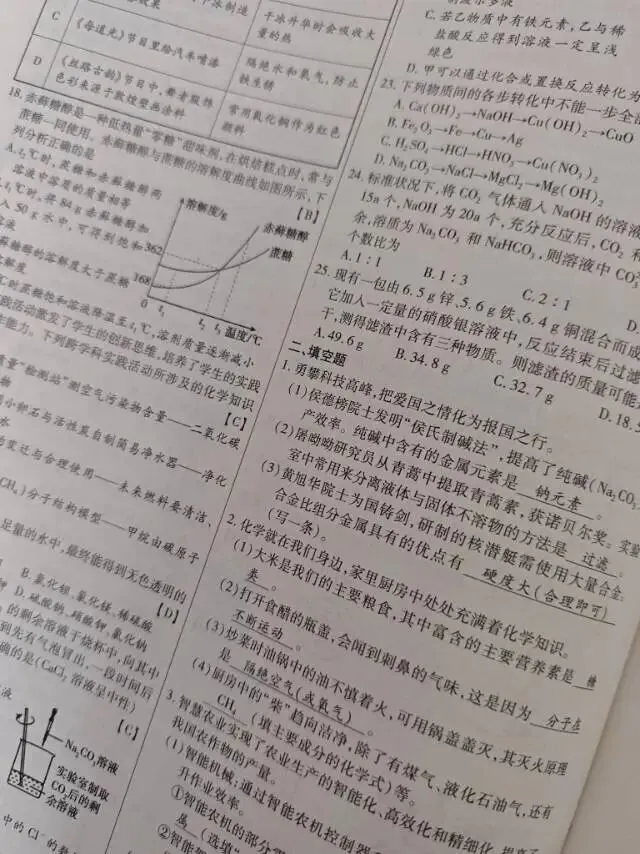 干冰升华时会吸收大
量的热
C
《每道光》节目里给汽车喷漆
隔绝水和氧气,防止
铁生锈
D
《丝路古韵》节目中,舞者服饰
色彩来源于敦煌壁画涂料
常用氧化铜作为红色
颜料
18. 赤藓糖醇是一种低热量“零糖”甜味剂,在烘焙糕点时,常与
蔗糖一同使用。赤藓糖醇与蔗糖的溶解度曲线如图所示,下
列分析正确的是
【B】
℃时,蔗糖和赤藓糖醇两
溶液中溶质的质量相等
℃时,将84g赤藓糖醇加
入50g水中,可得到饱和
溶解度/g
赤藓糖醇
蔗糖
362
168
0
t₁
t₂ t₃ 温度/℃
藓糖醇的溶解度大于蔗糖
解度
℃时蔗糖饱和溶液降温至t₁℃,溶剂质量逐渐减小
践活动激发了学生的创新思维,培养了学生的实践
能力。下列跨学科实践活动所涉及的化学知识
【C】
质量“检测站”测空气污染物含量——二氧化碳
物
用小卵石与活性炭自制简易净水器——净化
的变迁与合理使用——未来燃料要清洁、
CH₄)分子结构模型——甲烷由碳原子
足量的水中,最终能得到无色透明的
【D】
B. 氯化钡、氯化镁、稀硫酸
D. 硫酸钠、硝酸钾、氯化钠
的剩余溶液于烧杯中,向其中
到先有气泡冒出,一段时间后
确的是(CaCl₂溶液呈中性)
【C】
Na₂CO₃溶液
实验室制取
CO₂后的剩
余溶液
中的Cl⁻的
C. 若乙物质中有铁元素,乙与稀
盐酸反应得到溶液一定呈浅
绿色
D. 甲可以通过化合或置换反应转化为
23. 下列物质间的各步转化中不能一步全
A. Ca(OH)₂→NaOH→Cu(OH)₂→CuO
B. Fe₂O₃→Fe→Cu→Ag
C. H₂SO₄→HCl→HNO₃→Cu(NO₃)₂
D. Na₂CO₃→NaCl→MgCl₂→Mg(OH)₂
24. 标准状况下,将CO₂气体通入NaOH的溶液
15a个,NaOH为20a个,充分反应后,CO₂和
余,溶质为Na₂CO₃和NaHCO₃,则溶液中CO₃
个数比为
A. 1∶1
B. 1∶3
C. 2∶1
D.
25. 现有一包由6.5g锌、5.6g铁、6.4g铜混合而成
它加入一定量的硝酸银溶液中,反应结束后过滤
干,测得滤渣中含有三种物质。则滤渣的质量可能
A. 49.6g
B. 34.8g
C. 32.7g
D. 18.5
二、填空题
1. 勇攀科技高峰,把爱国之情化为报国之行。
(1)侯德榜院士发明“侯氏制碱法”,提高了纯碱(Na₂CO₃
产效率。纯碱中含有的金属元素是 钠元素 。
(2)屠呦呦研究员从青蒿中提取青蒿素,获诺贝尔奖。实验
室中常用来分离液体与固体不溶物的方法是 过滤 。
(3)黄旭华院士为国铸剑,研制的核潜艇需使用大量合金。
合金比组分金属具有的优点有 硬度大(合理即可)
(写一条)。
2. 化学就在我们身边,家里厨房中处处充满着化学知识。
(1)大米是我们的主要粮食,其中富含的主要营养素是 糖
类 。
(2)打开食醋的瓶盖,会闻到刺鼻的气味,这是因为 分子在
不断运动 。
(3)炒菜时油锅中的油不慎着火,可用锅盖盖灭,其灭火原理
是 隔绝空气(或氧气) 。
(4)厨房中的“柴”趋向洁净,除了有煤气、液化石油气,还有
CH₄ (填主要成分的化学式)等。
3. 智慧农业实现了农业生产的智能化、高效化和精细化,提高了
我国农作物的产量。
(1)智能机械:通过智能农机控制器
升作业效率。
①智能农机的部分
(选填“
②智能